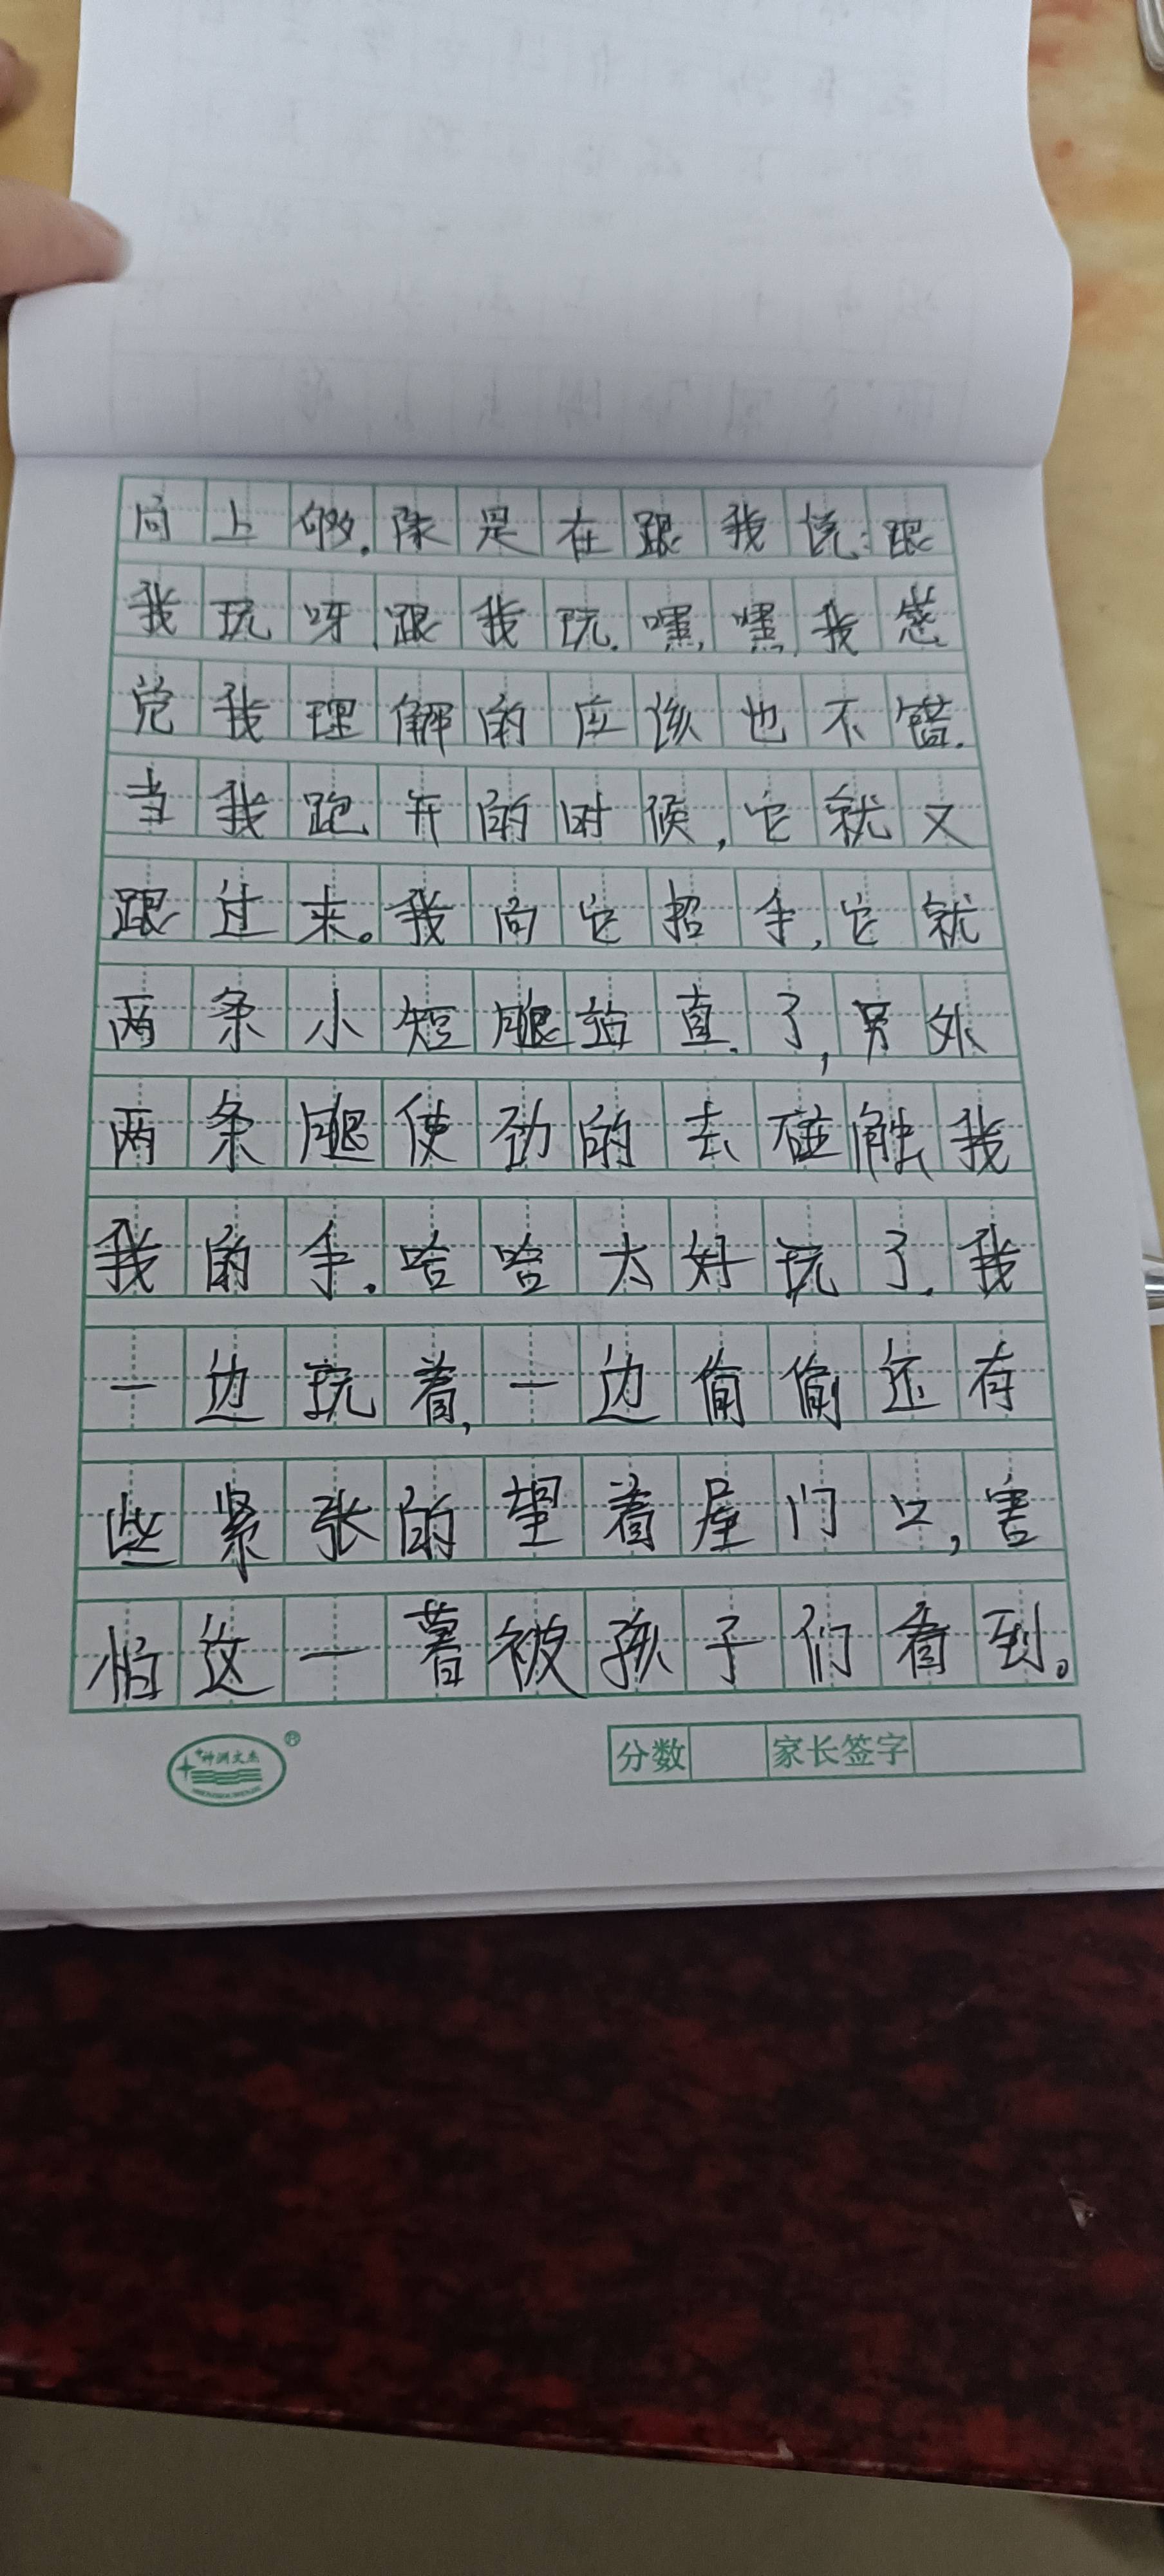 向上够.像是在跟我说:跟
我玩呀.跟我玩.嘿,嘿,我感
觉我理解的应该也不错.
当我跑开的时候,它就又
跟过来。我向它招手,它就
两条小短腿站直.了,另外
两条腿使劲的去碰触我
我的手.哈哈太好玩了.我
一边玩着,一边偷偷还有
些紧张的望着屋门口,害
怕这一幕被孩子们看到。
神洲文杰
分数 家长签字